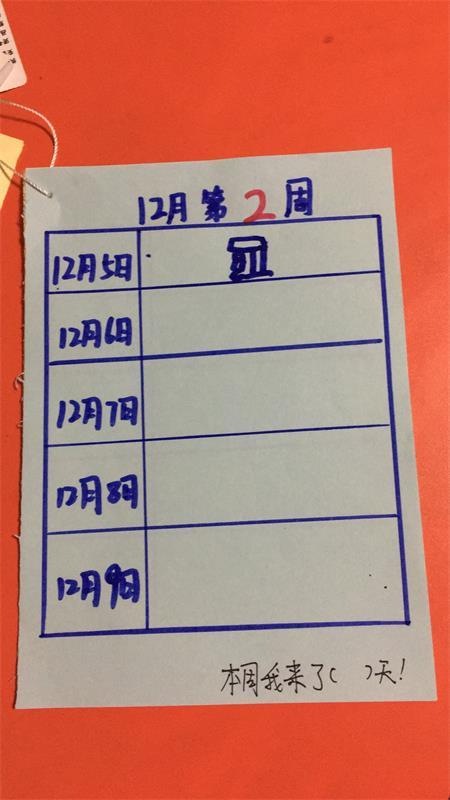 12月第2周
12月5日
12月6日
12月7日
12月8日
12月9日
本周我来了( )天!